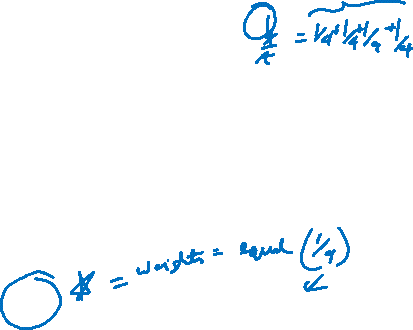 = 1/4 + 1/4 + 1/4 + 1/4
= weights = equal (1/4)